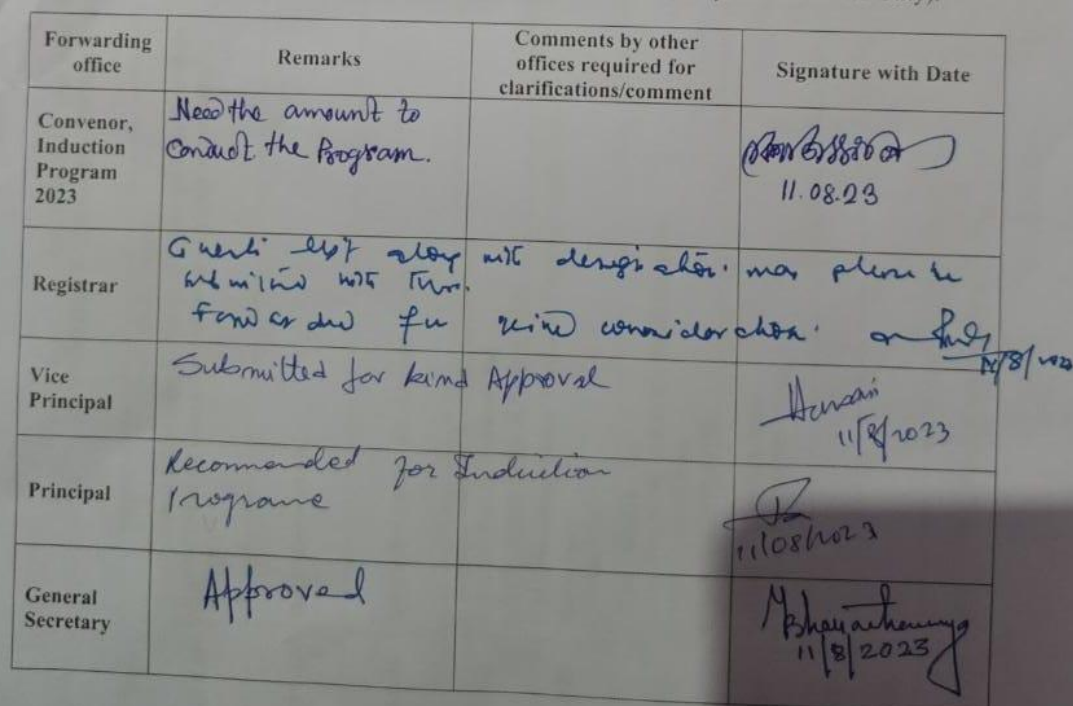 Forwarding office
Remarks
Comments by other offices required for clarifications/comment
Signature with Date
Convenor,
Induction
Program
2023
Need the amount to
Conduct the Program.
11.08.23
Registrar
along with designation. may please be
submitted with
for consideration.
Vice
Principal
Submitted for kind Approval
11/8/2023
Principal
Recommended for Induction
Programe
11/08/2023
General
Secretary
Approved
11/8/2023